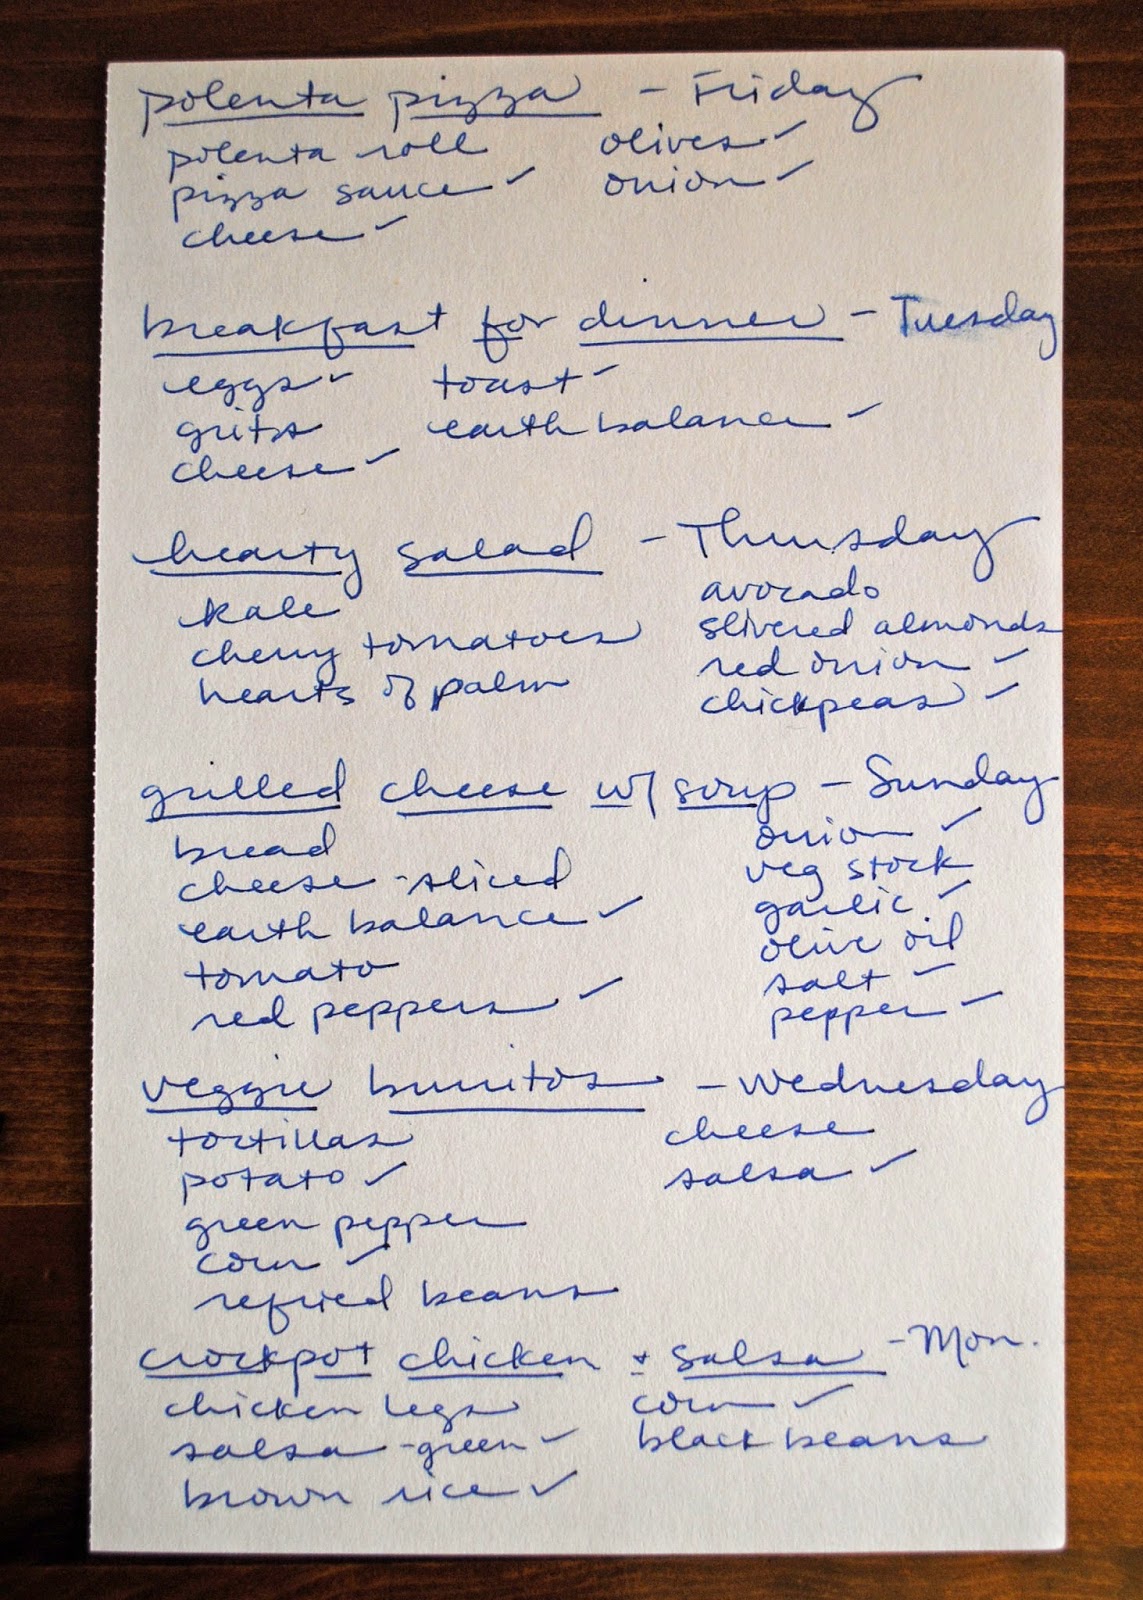 polenta pizza - Friday
polenta roll olives ✓
pizza sauce ✓ onion ✓
cheese ✓
breakfast for dinner - Tuesday
eggs ✓ toast ✓
grits earth balance ✓
cheese ✓
hearty salad - Thursday
kale avocado
cherry tomatoes slivered almonds
hearts of palm red onion ✓
chickpeas ✓
grilled cheese w/ soup - Sunday
bread onion ✓
cheese - sliced veg stock
earth balance ✓ garlic ✓
tomato olive oil
red peppers ✓ salt ✓
pepper ✓
veggie burritos - Wednesday
tortillas cheese
potato ✓ salsa ✓
green pepper
corn ✓
refried beans
crockpot chicken + salsa - Mon.
chicken legs corn ✓
salsa - green ✓ black beans
brown rice ✓